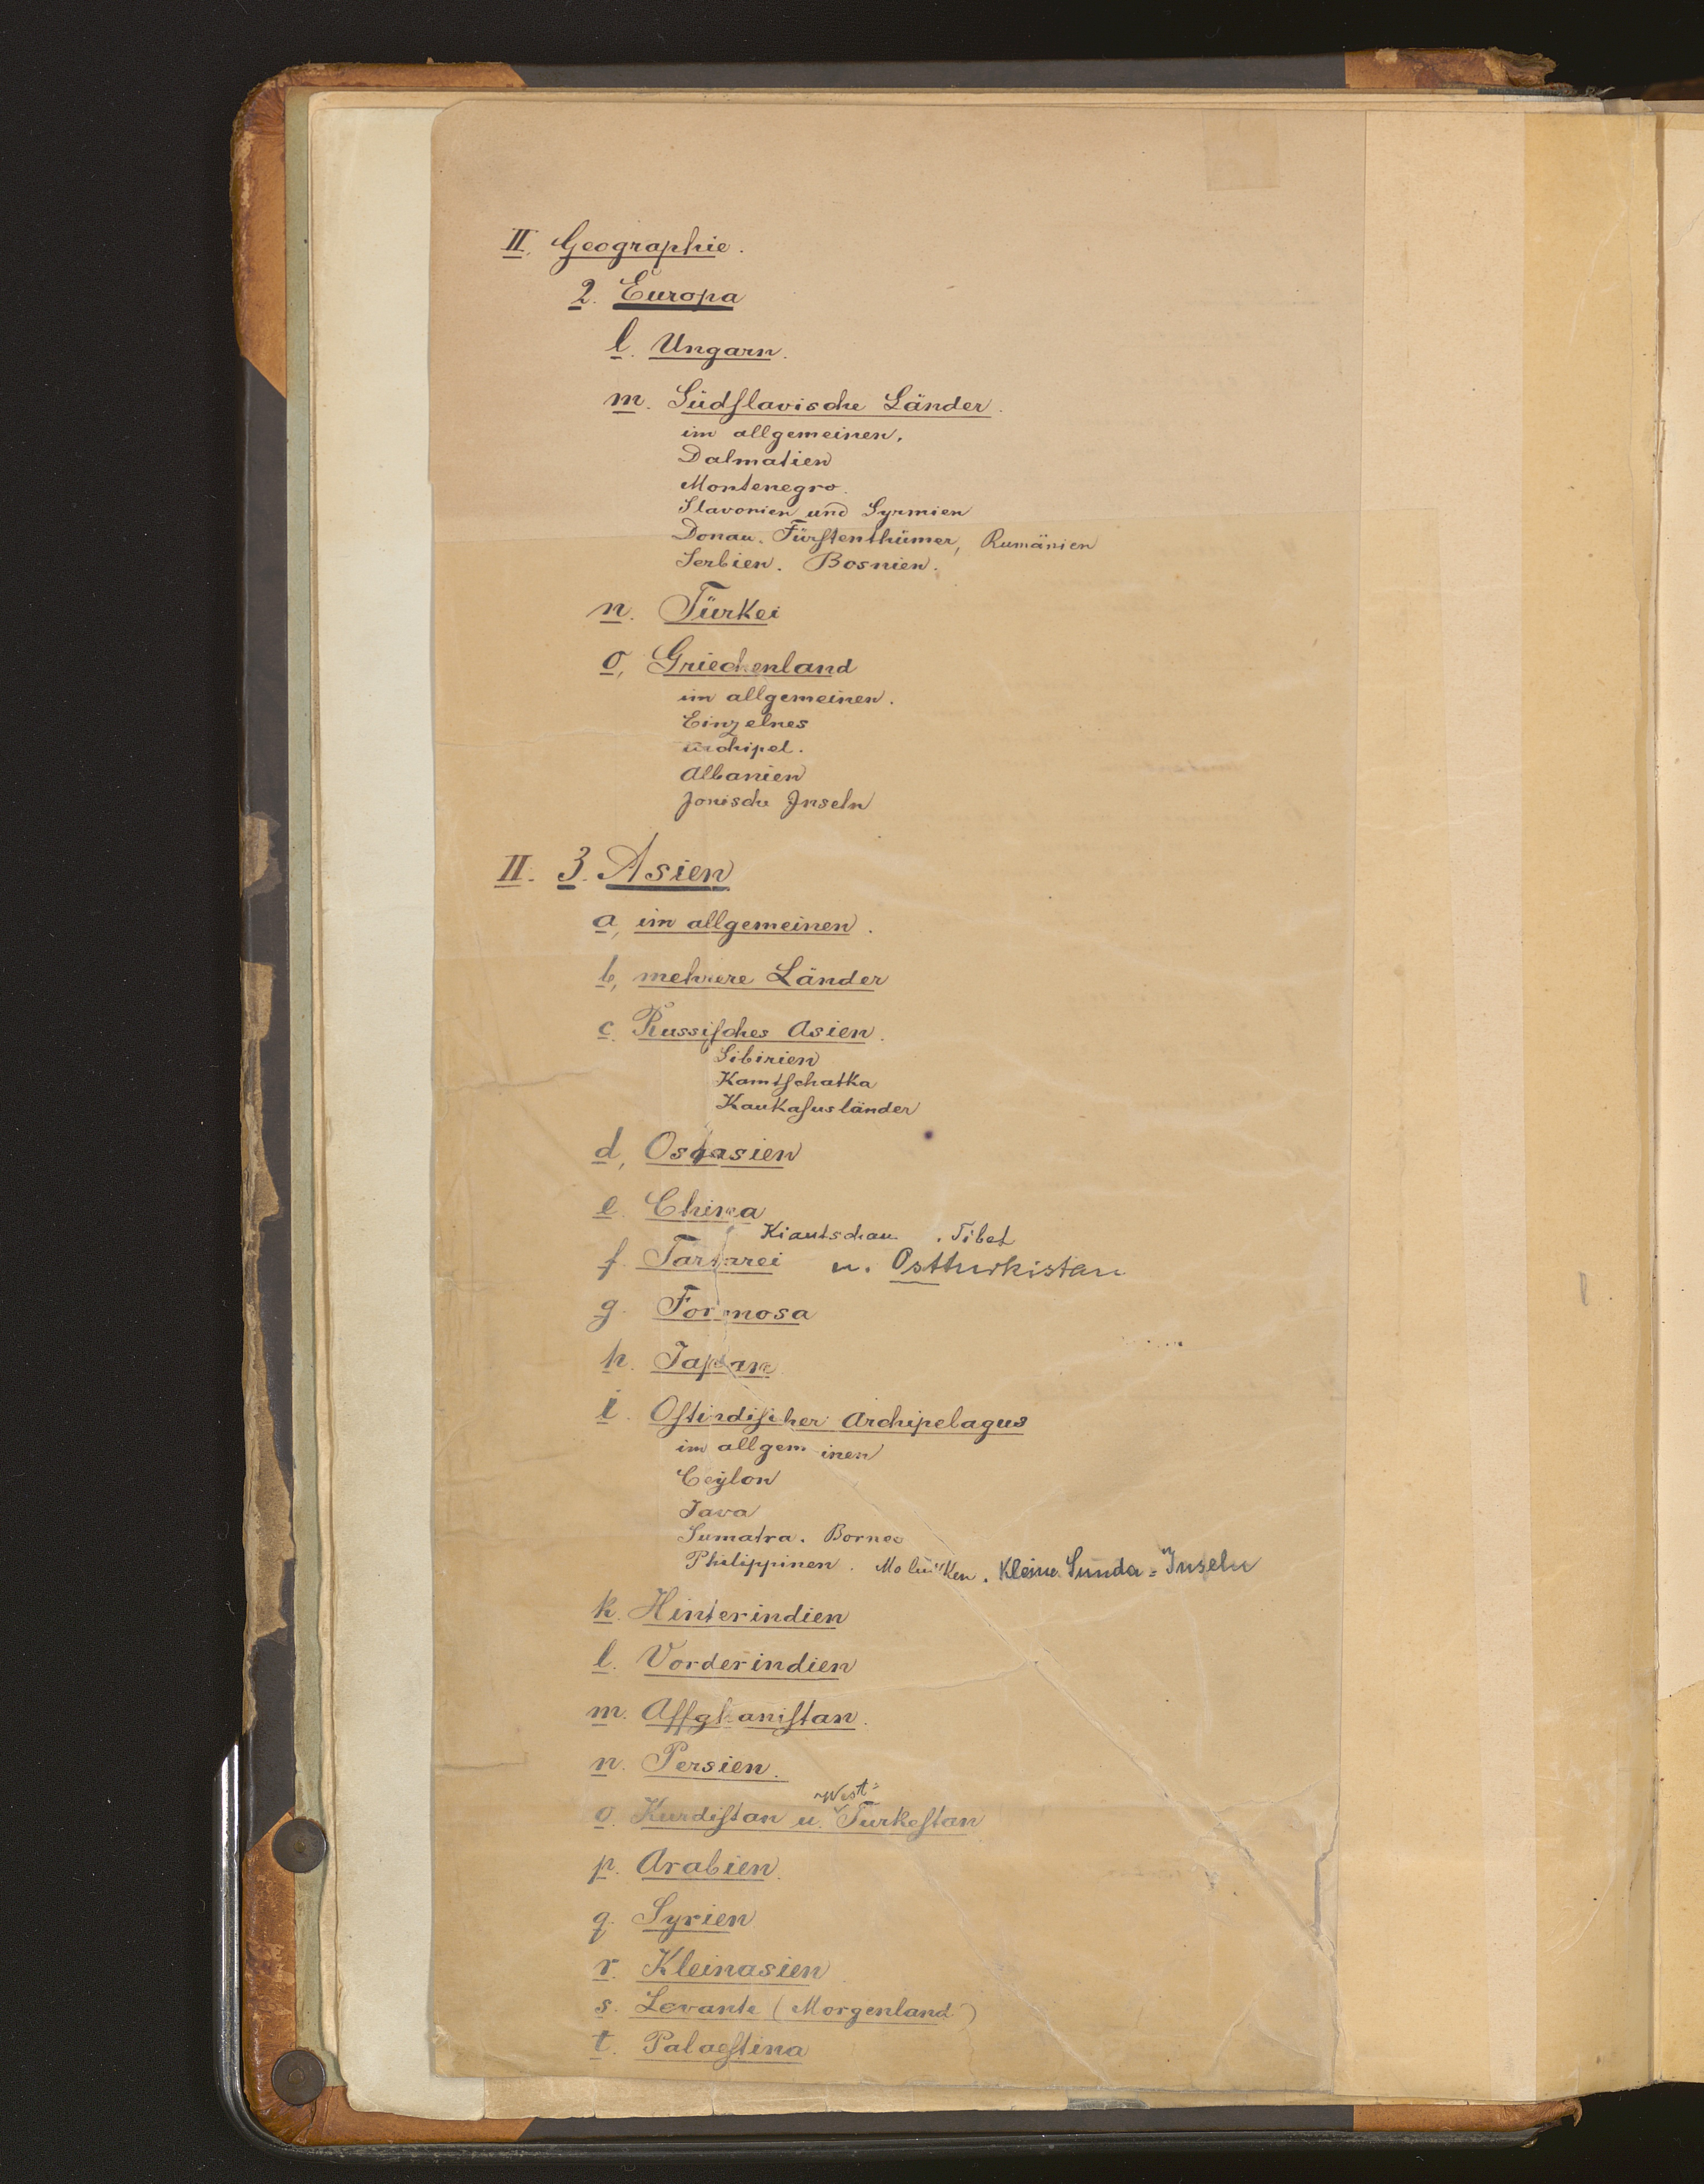 II. Geographie.
2. Europa
l. Ungarn.
m. Südslavische Länder.
im allgemeinen,
Dalmatien
Montenegro.
Slavonien und Syrmien
Donau-Fürstenthümer, Rumänien
Serbien. Bosnien.
n. Türkei
o, Griechenland
im allgemeinen.
Einzelnes
Archipel.
Albanien
Jonische Inseln
II. 3. Asien
a, im allgemeinen.
b, mehrere Länder
c. Russisches Asien.
Sibirien
Kamtschatka
Kaukasusländer
d, Ostasien
e. China
Kiautschau. Tibet
f. Tartarei u. Ostturkistan
g. Formosa
h. Japan
i. Ostindischer Archipelagus
im allgemeinen
Ceylon
Java
Sumatra. Borneo
Philippinen. Molukken. Kleine Sunda=Inseln
k. Hinterindien
l. Vorderindien
m. Affghanistan.
n. Persien.
West=
o. Kurdistan u. Turkestan
p. Arabien.
q. Syrien
r. Kleinasien
s. Levante (Morgenland)
t. Palaestina